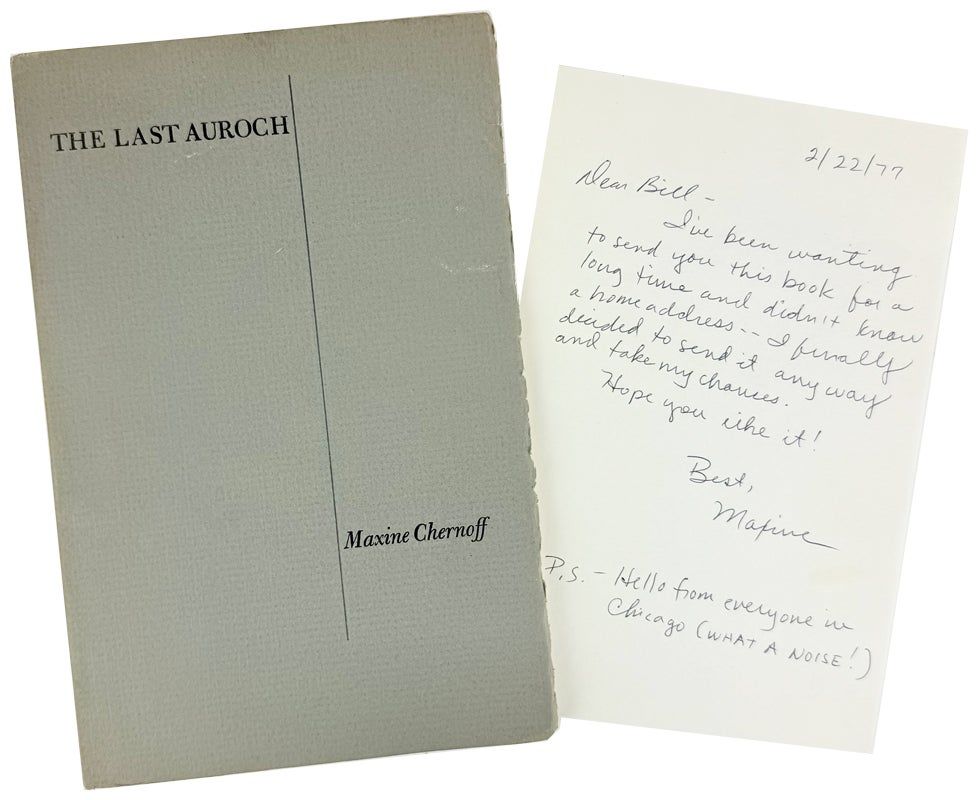 THE LAST AUROCH
Maxine Chernoff
2/22/77
Dear Bill -
I've been wanting
to send you this book for a
long time and didn't know
a home address -- I finally
decided to send it any way
and take my chances.
Hope you like it!
Best,
Maxine
P.S. - Hello from everyone in
Chicago (WHAT A NOISE!)